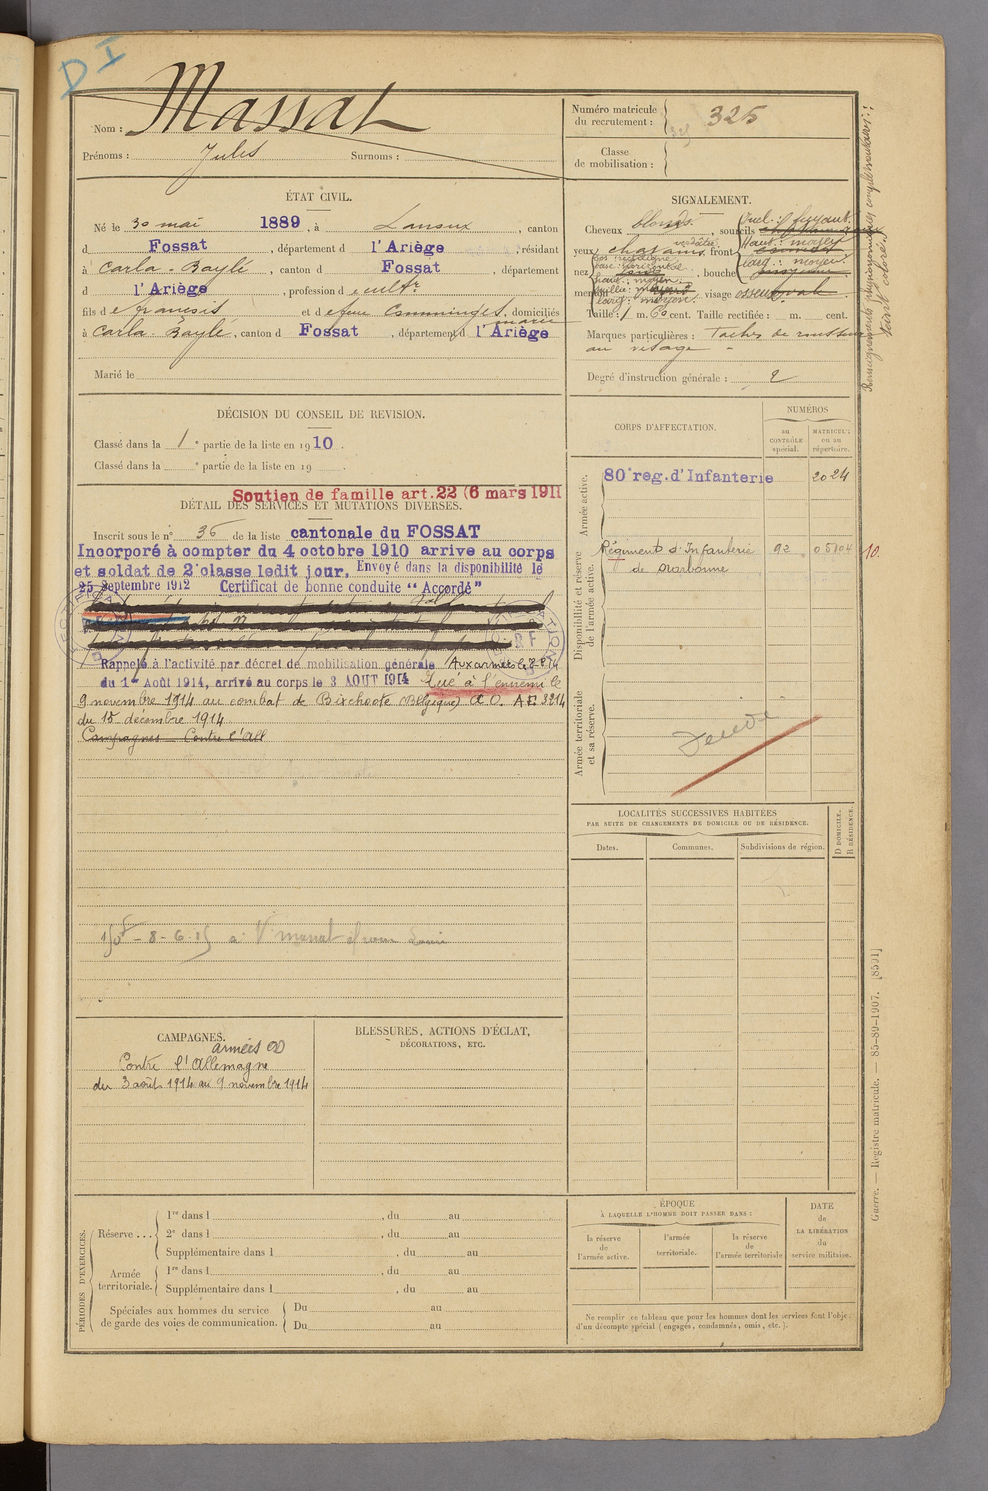 D I
Nom : Massat
Prénoms : Jules Surnoms :
Numéro matricule du recrutement : 325
Classe de mobilisation :
ÉTAT CIVIL.
Né le 30 mai 1889, à Lanoux, canton
d Fossat, département d l'Ariège résidant
à Carla-Bayle, canton d Fossat, département
d l'Ariège, profession de cultr
fils de François et de feue Comminges, domiciliés
à Carla-Bayle, canton d Fossat, département d l'Ariège
Marié le
SIGNALEMENT.
Cheveux blonds, sourcils
Incl. : fuyant.
yeux châtains verdâtre front
Haut. : moyen
Larg. : moyen
dos : rectiligne
base : horizontale
nez bouche
haut. : moyen
saillie : moyen
larg. : moyen.
menton visage osseux
Taille : 1 m. 60 cent. Taille rectifiée : m. cent.
Marques particulières : Taches de rousseur
au visage
Degré d'instruction générale : 2
Renseignements physionomiques complémentaires :
teint coloré.
DÉCISION DU CONSEIL DE REVISION.
Classé dans la 1e partie de la liste en 1910.
Classé dans la e partie de la liste en 19
Soutien de famille art. 22 (6 mars 1911
DÉTAIL DES SERVICES ET MUTATIONS DIVERSES.
Inscrit sous le n° 36 de la liste cantonale du FOSSAT
Incorporé à compter du 4 octobre 1910 arrivé au corps
et soldat de 2e classe ledit jour. Envoyé dans la disponibilité le
25 Septembre 1912 Certificat de bonne conduite "Accordé"
Rappelé à l'activité par décret de mobilisation générale Aux armées le
du 1er Août 1914, arrivé au corps le 3 AOUT 1914 Tué à l'ennemi le
9 novembre 1914 au combat de Bixchoote (Belgique) A.O. AE 3214
du 15 décembre 1914
Campagnes - Contre l'All
CORPS D'AFFECTATION.
NUMÉROS
au CONTRÔLE spécial.
MATRICULE ou au répertoire.
Armée active.
80e reg. d'Infanterie 2024
Disponibilité et réserve de l'armée active.
Régiment d'Infanterie 92 05104 10.
de Narbonne
Armée territoriale et sa réserve.
LOCALITÉS SUCCESSIVES HABITÉES
PAR SUITE DE CHANGEMENTS DE DOMICILE OU DE RÉSIDENCE.
Dates. Communes. Subdivisions de région. D DOMICILE. R RÉSIDENCE.
CAMPAGNES.
armées
Contre l'Allemagne
du 3 août 1914 au 9 novembre 1914
BLESSURES, ACTIONS D'ÉCLAT,
DÉCORATIONS, ETC.
PÉRIODES D'EXERCICES.
Réserve ...
1re dans l , du au
2e dans l , du au
Supplémentaire dans l , du au
Armée territoriale.
1re dans l , du au
Supplémentaire dans l , du au
Spéciales aux hommes du service de garde des voies de communication.
Du au
Du au
ÉPOQUE
À LAQUELLE L'HOMME DOIT PASSER DANS :
la réserve de l'armée active.
l'armée territoriale.
la réserve de l'armée territoriale
DATE de LA LIBÉRATION du service militaire.
Ne remplir ce tableau que pour les hommes dont les services font l'objet
d'un décompte spécial (engagés, condamnés, omis, etc.).
Guerre. — Registre matricule. — 85-89-1907. [8591]